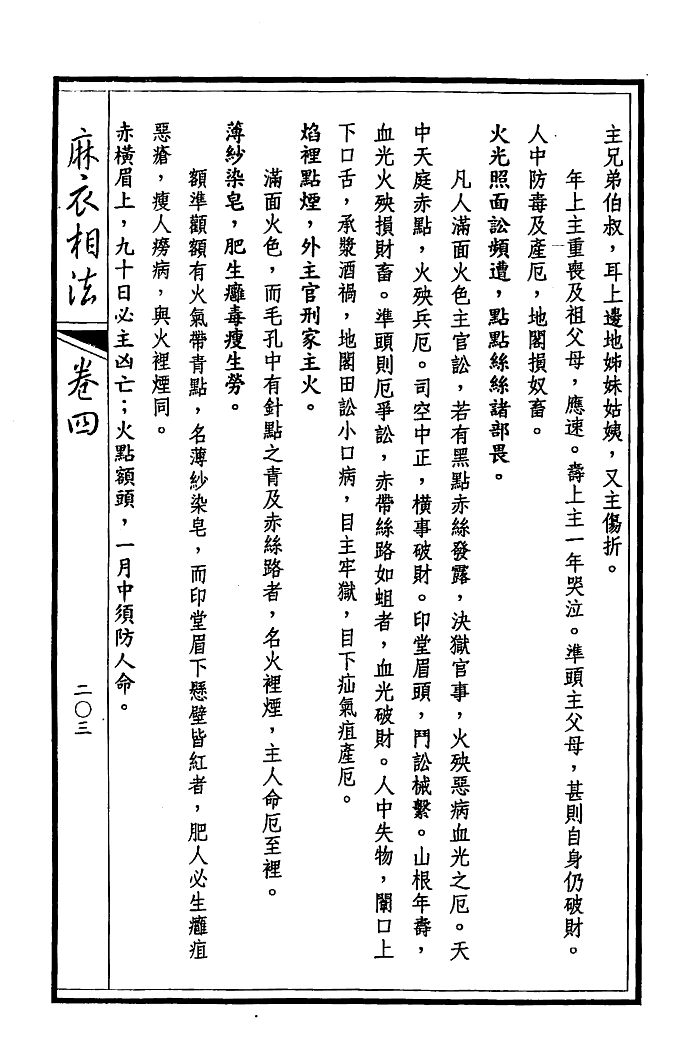 主兄弟伯叔，耳上邊地姊妹姑姨，又主傷折。
年上主重喪及祖父母，應速。壽上主一年哭泣。準頭主父母，甚則自身仍破財。
人中防毒及產厄，地閣損奴畜。
火光照面訟頻遭，點點絲絲諸部畏。
凡人滿面火色主官訟，若有黑點赤絲發露，決獄官事，火殃惡病血光之厄。天
中天庭赤點，火殃兵厄。司空中正，橫事破財。印堂眉頭，鬥訟械繫。山根年壽，
血光火殃損財畜。準頭則厄爭訟，赤帶絲路如蛆者，血光破財。人中失物，闌口上
下口舌，承漿酒禍，地閣田訟小口病，目主牢獄，目下疝氣疽產厄。
焰裡點煙，外主官刑家主火。
滿面火色，而毛孔中有針點之青及赤絲路者，名火裡煙，主人命厄至裡。
薄紗染皂，肥生癰毒瘦生勞。
額準顴額有火氣帶青點，名薄紗染皂，而印堂眉下懸壁皆紅者，肥人必生癰疽
惡瘡，瘦人癆病，與火裡煙同。
赤橫眉上，九十日必主凶亡；火點額頭，一月中須防人命。
麻衣相法 卷四
二〇三